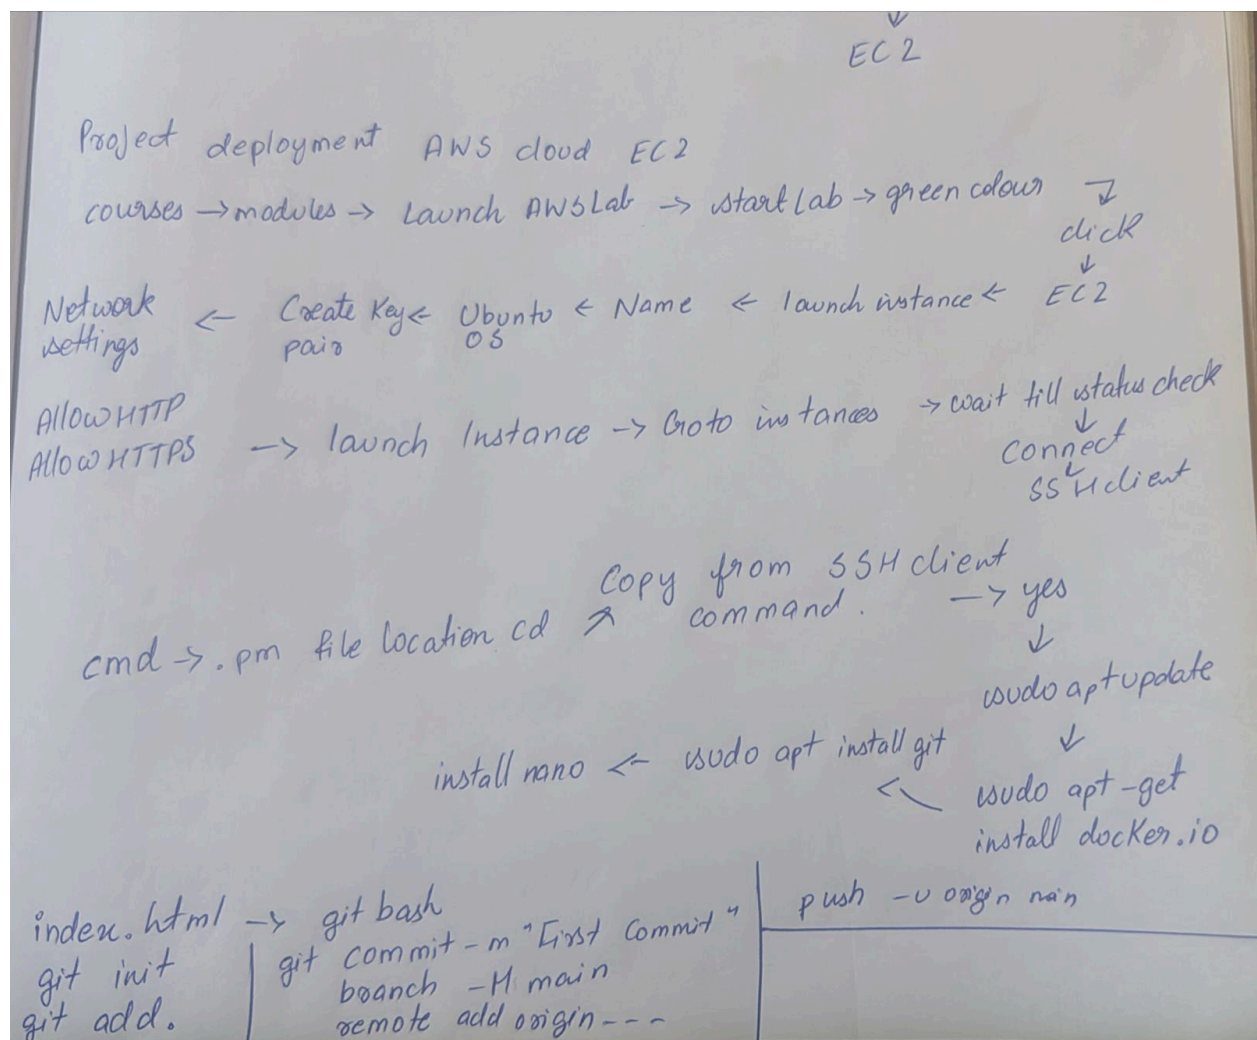 ↓
EC2
Project deployment AWS cloud EC2
courses → modules → Launch AWS Lab → start Lab → green colour ↓
click
↓
Network settings ← Create Key pair ← Ubunto OS ← Name ← launch instance ← EC2
Allow HTTP
Allow HTTPS → launch Instance → Goto instances → wait till status check
↓
Connect
↓
SSH client
Copy from SSH client
cmd → .pm file location cd ↗ command. → yes
↓
sudo apt update
↓
install nano ← sudo apt install git
← sudo apt-get
install docker.io
index.html → git bash
git init
git add.
git commit -m "First Commit"
branch -M main
remote add origin ---
push -u origin main